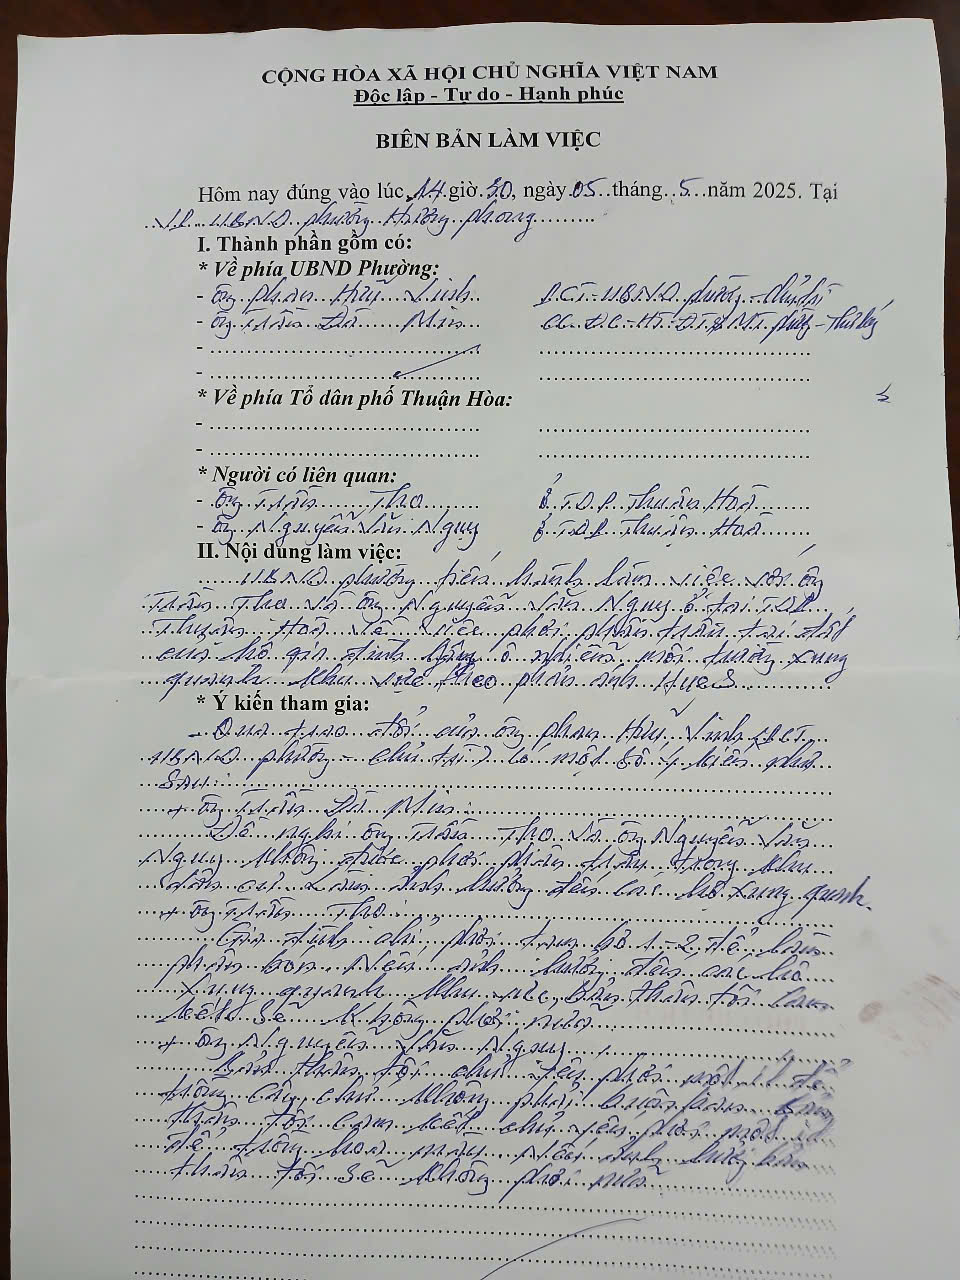 CỘNG HÒA XÃ HỘI CHỦ NGHĨA VIỆT NAM
Độc lập - Tự do - Hạnh phúc
BIÊN BẢN LÀM VIỆC
Hôm nay đúng vào lúc 14 giờ 30, ngày 05 tháng 5 năm 2025. Tại
UBND phường Hương phong
I. Thành phần gồm có:
* Về phía UBND Phường:
- Ông Phan Hữu Linh P.CT-UBND phường - Chủ trì
- Ông Trần Đa Min CC. ĐC-NN-ĐT&MT phường - Thư ký
* Về phía Tổ dân phố Thuận Hòa:
* Người có liên quan:
- Ông Trần Tho ở TDP Thuận Hoà
- Ông Nguyễn Văn Nguy ở TDP Thuận Hoà
II. Nội dung làm việc:
UBND phường tiến hành làm việc với ông
Trần Tho và ông Nguyễn Văn Nguy ở tại TDP
Thuận Hoà về việc phơi phân trâu tại
của hộ gia đình gây ô nhiễm môi trường xung
quanh khu vực theo phản ánh HueS
* Ý kiến tham gia:
- Qua trao đổi của ông Phan Hữu Linh (PCT
UBND phường - chủ trì) có một số ý kiến như
sau:
+ Ông Trần Đa Min:
Đề nghị ông Trần Tho và ông Nguyễn Văn
Nguy không được phơi phân trâu trong khu
dân cư làm ảnh hưởng đến các hộ xung quanh.
+ Ông Trần Tho:
Gia đình chỉ phơi 1-2 để làm
phân bón. Nếu ảnh hưởng đến các hộ
xung quanh khu vực, bản thân tôi cam
kết sẽ không phơi nữa
+ Ông Nguyễn Văn Nguy:
Bản thân tôi chủ yếu phơi một ít để
trồng cây chứ không phải buôn bán. Bản
thân tôi cam kết chủ yếu phơi một ít
để trồng hoa màu nếu ảnh hưởng bản
thân tôi sẽ không phơi nữa